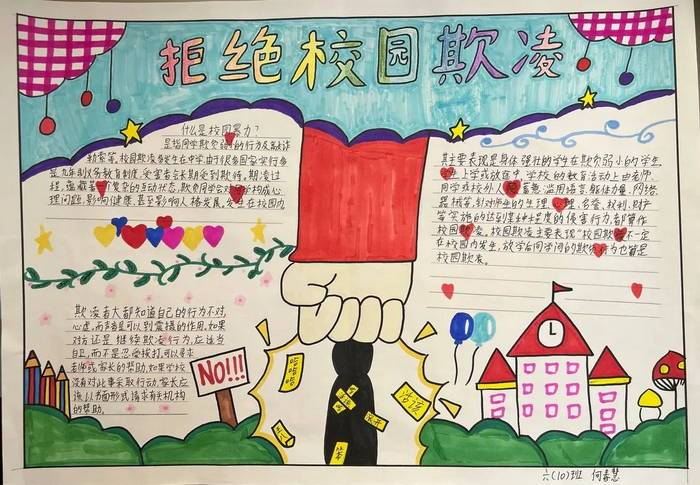 拒绝校园欺凌
什么是校园暴力?
是指同学欺负弱的行为及敲诈
勒索等,校园欺凌多发生在中学,由于很多国家实行多
是九年制义务教育制度,受害者会长期受到欺辱,期凌过
心理问题,影响健康,甚至影响人格发展,发生在校园内
其主要表现是身体强壮的学生在欺负弱小的学生,
上学或放店中,学校的教育活动上由老师,
同学或校外人蓄意滥用语言,躯体力量,网络
器械等,针对师生的生理,名誉,权利,财产
等实施的达到某种程度的侵害行为,都算作
校园欺凌。校园欺凌主要表现"校园欺凌不一定
在校园内发生,放学后同学间的欺行为也算是
校园欺凌。
欺凌者大部知道自己的行为不对,
心虚,而声音呈可以到震摄的作用。如果
对方还是继续欺凌行为,应法当
自卫,而不是忍受挨打,可以寻求
老师或家长的帮助。如果学校
没有对此事采取行动,家长应
该以书面形式请求有关机构
的帮助。
NO!!!
哈哈哈
活该
笨
六(10)班 何春慧